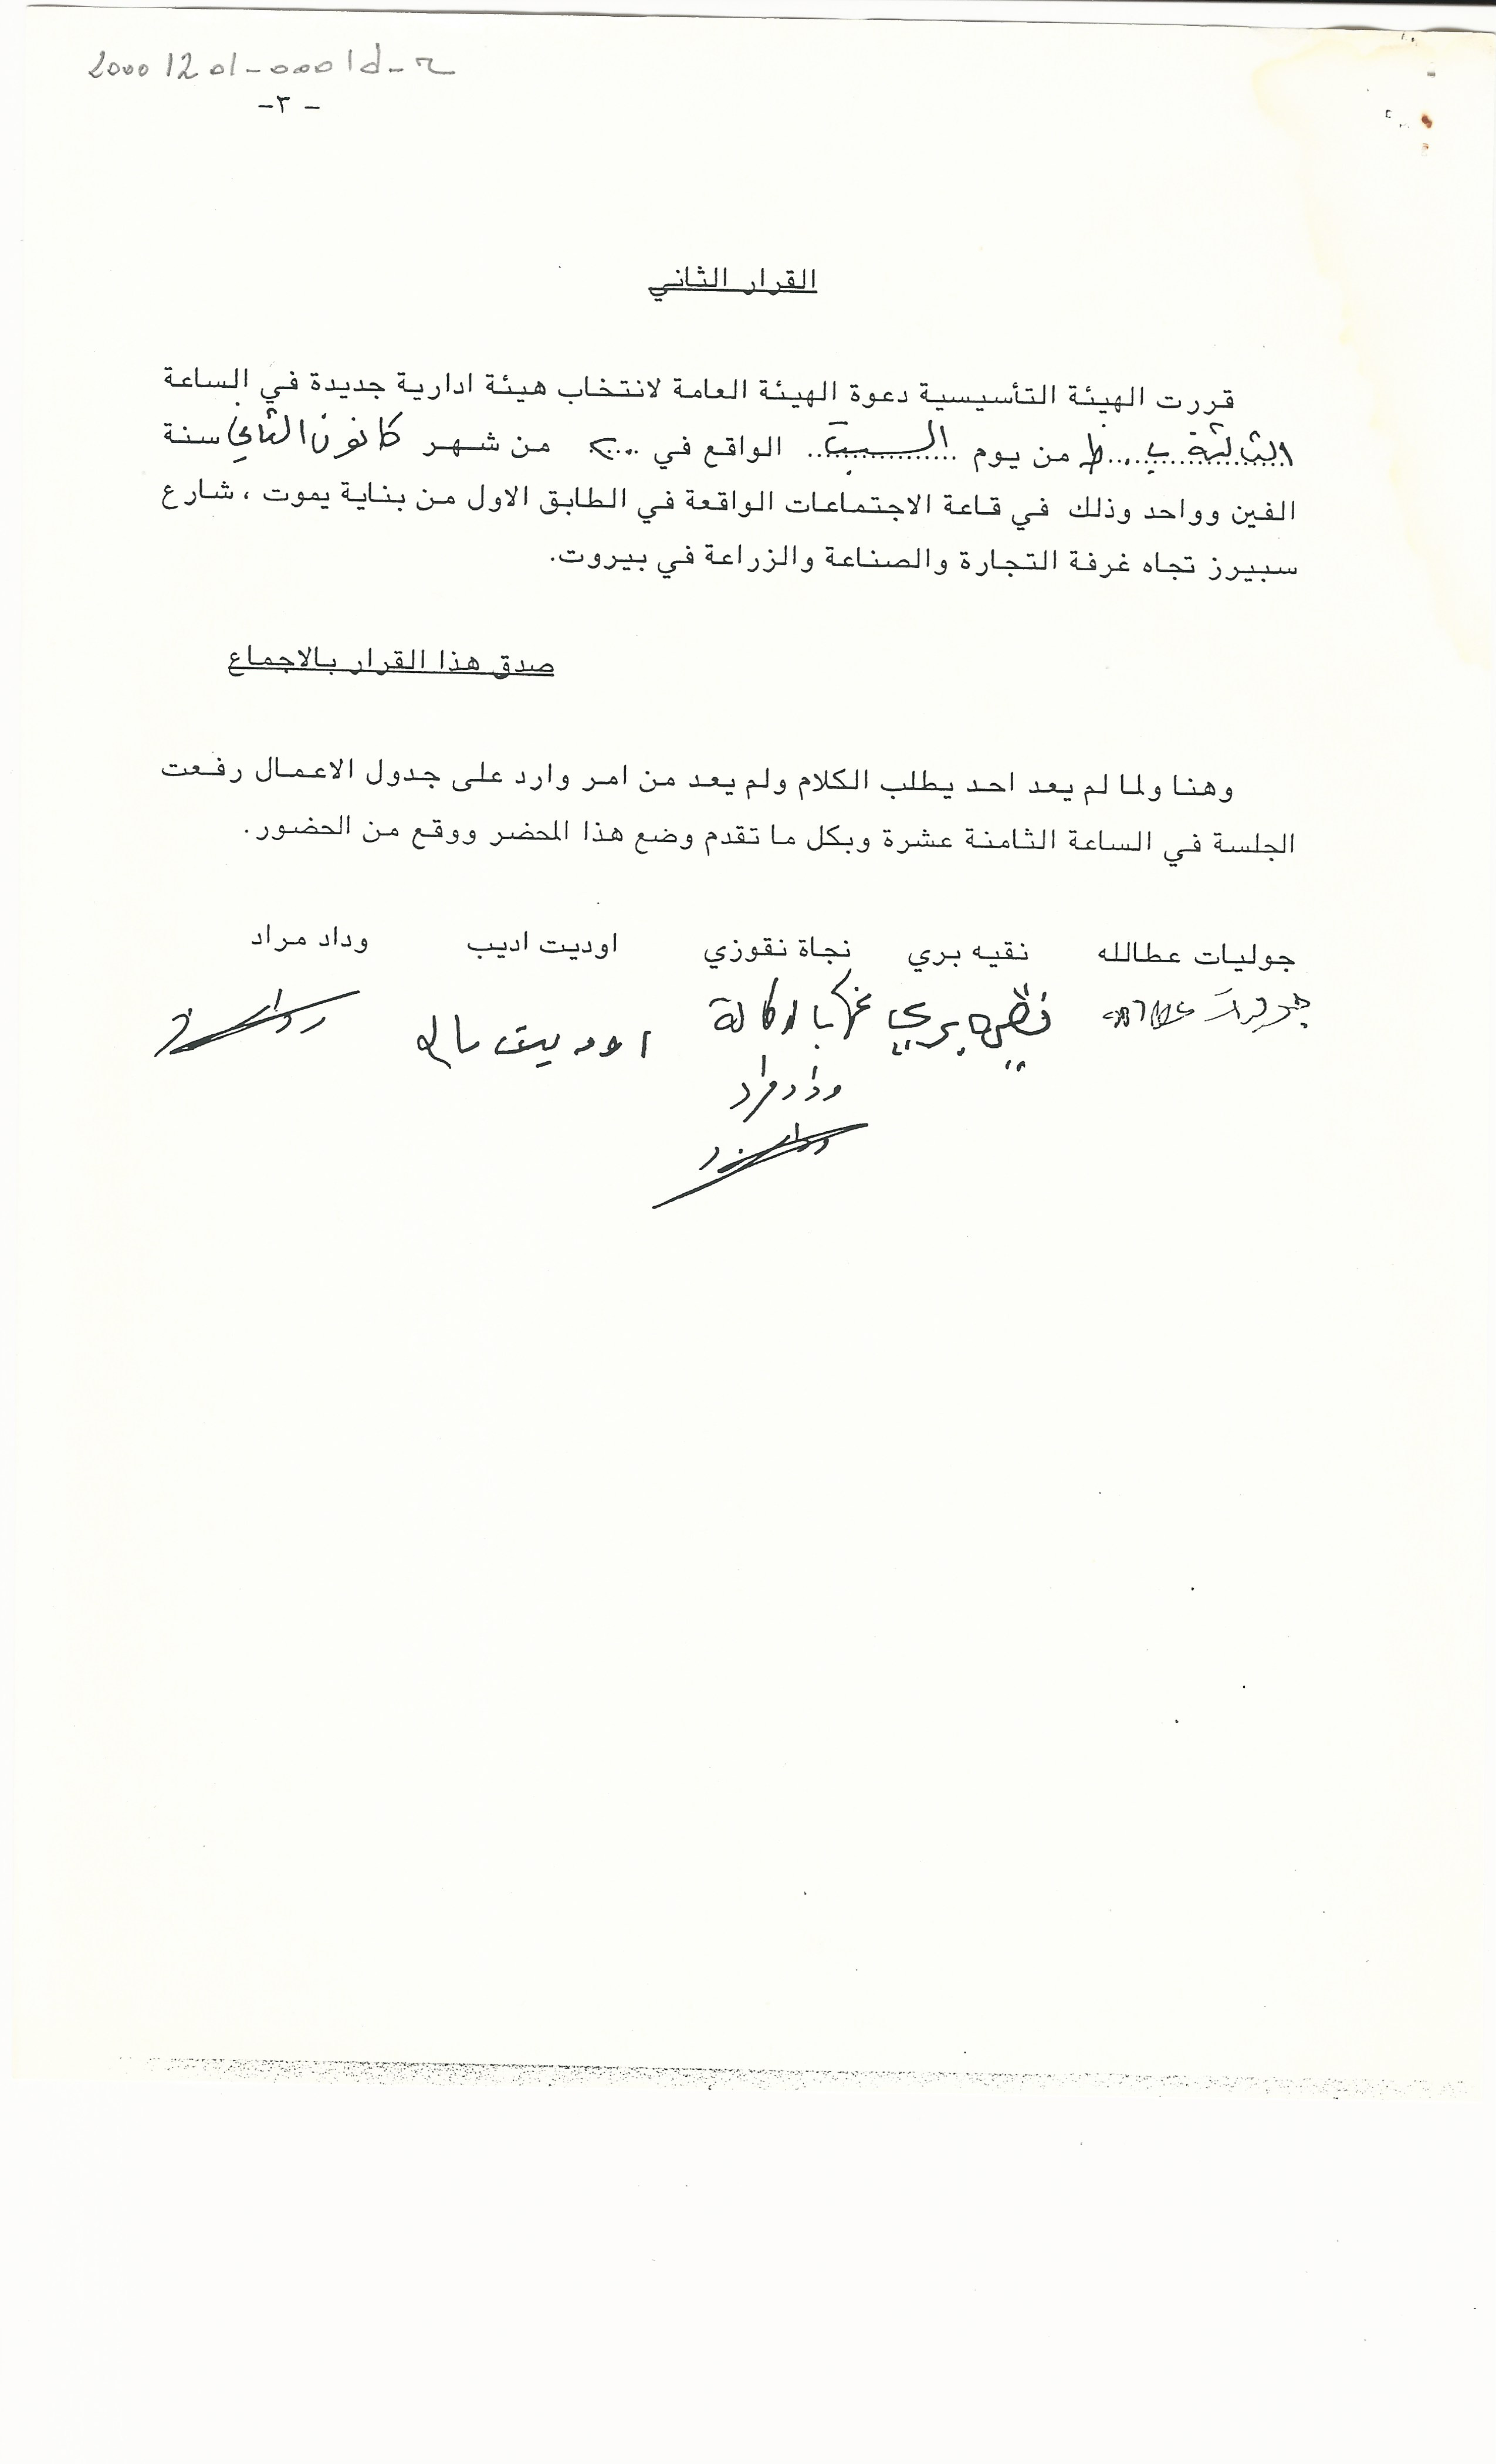 20001201-0001d-r
-٣-
القرار الثاني
قررت الهيئة التأسيسية دعوة الهيئة العامة لانتخاب هيئة ادارية جديدة في الساعة
الثالثة ب.ظ من يوم السبت الواقع في من شهر كانون الثاني سنة
الفين وواحد وذلك في قاعة الاجتماعات الواقعة في الطابق الاول من بناية يموت ، شارع
سبيرز تجاه غرفة التجارة والصناعة والزراعة في بيروت.
صدق هذا القرار بالاجماع
وهنا ولما لم يعد احد يطلب الكلام ولم يعد من امر وارد على جدول الاعمال رفعت
الجلسة في الساعة الثامنة عشرة وبكل ما تقدم وضع هذا المحضر ووقع من الحضور.
جوليات عطالله نقيه بري نجاة نقوزي اوديت اديب وداد مراد
نقيه بري بالوكالة اوديت سالم
وداد مراد